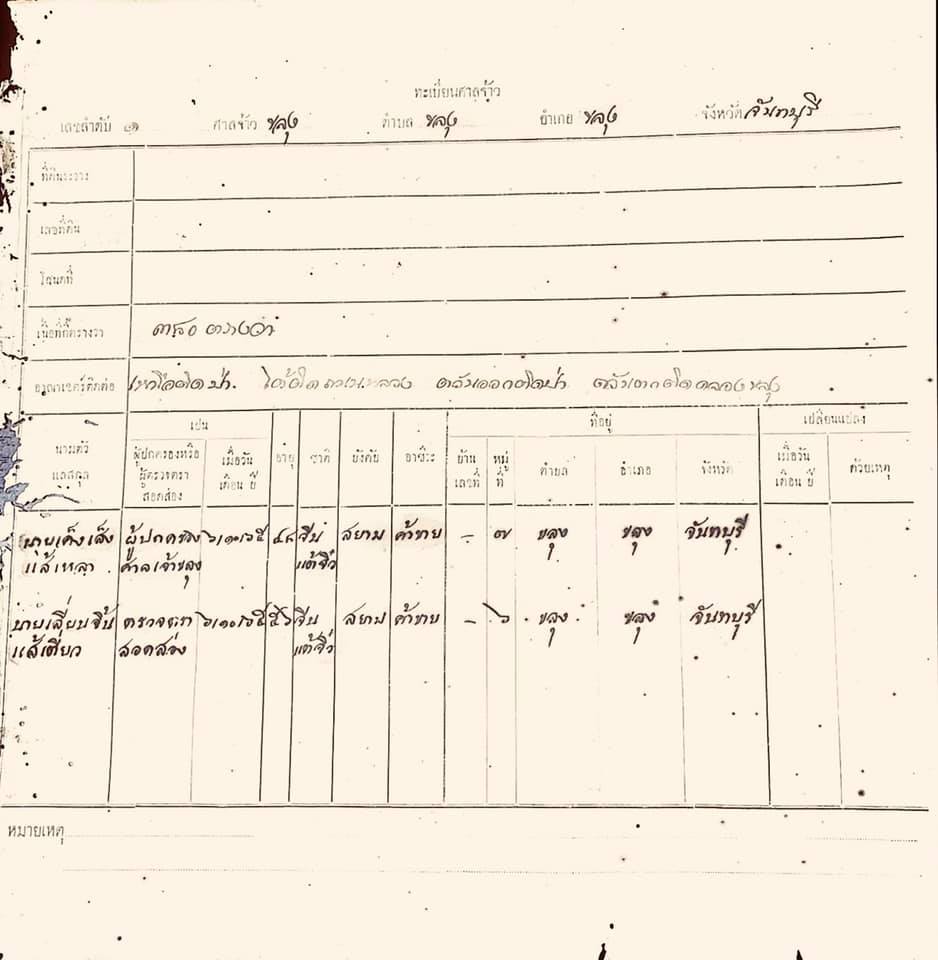 ทะเบียนศาลจ้าว
เลขลำดับ ๑ ศาลจ้าว ขลุง ตำบล ขลุง อำเภอ ขลุง จังหวัด จันทบุรี
ที่ดินระวาง
เลขที่ดิน
โฉนดที่
เนื้อที่กี่ตารางวา ตารางวา
อาณาเขตร์ติดต่อ เหนือติดป่า ใต้ติด ตะวันออกติดป่า ตะวันตกติดคลองขลุง
นามตัว และสกุล เปน อายุ ชาติ บังคับ อาชีวะ ที่อยู่ เปลี่ยนแปลง
ผู้ปกครองหรือ ผู้ตรวจตรา สอดส่อง เมื่อวัน เดือน ปี บ้าน เลขที่ หมู่ ที่ ตำบล อำเภอ จังหวัด เมื่อวัน เดือน ปี ด้วยเหตุ
นายเค็งเส็ง ผู้ปกครอง ๖/๑๐/๖๕ ๔๘ จีน สยาม ค้าขาย - ๗ ขลุง ขลุง จันทบุรี
แส้เหลา ศาลเจ้าขลุง แต้จิ๋ว
นายเลี่ยบจิ้น ตรวจตรา ๖/๑๐/๖๕ ๕๖ จีน สยาม ค้าขาย - ๖ ขลุง ขลุง จันทบุรี
แส้เตียว สอดส่อง แต้จิ๋ว
หมายเหตุ